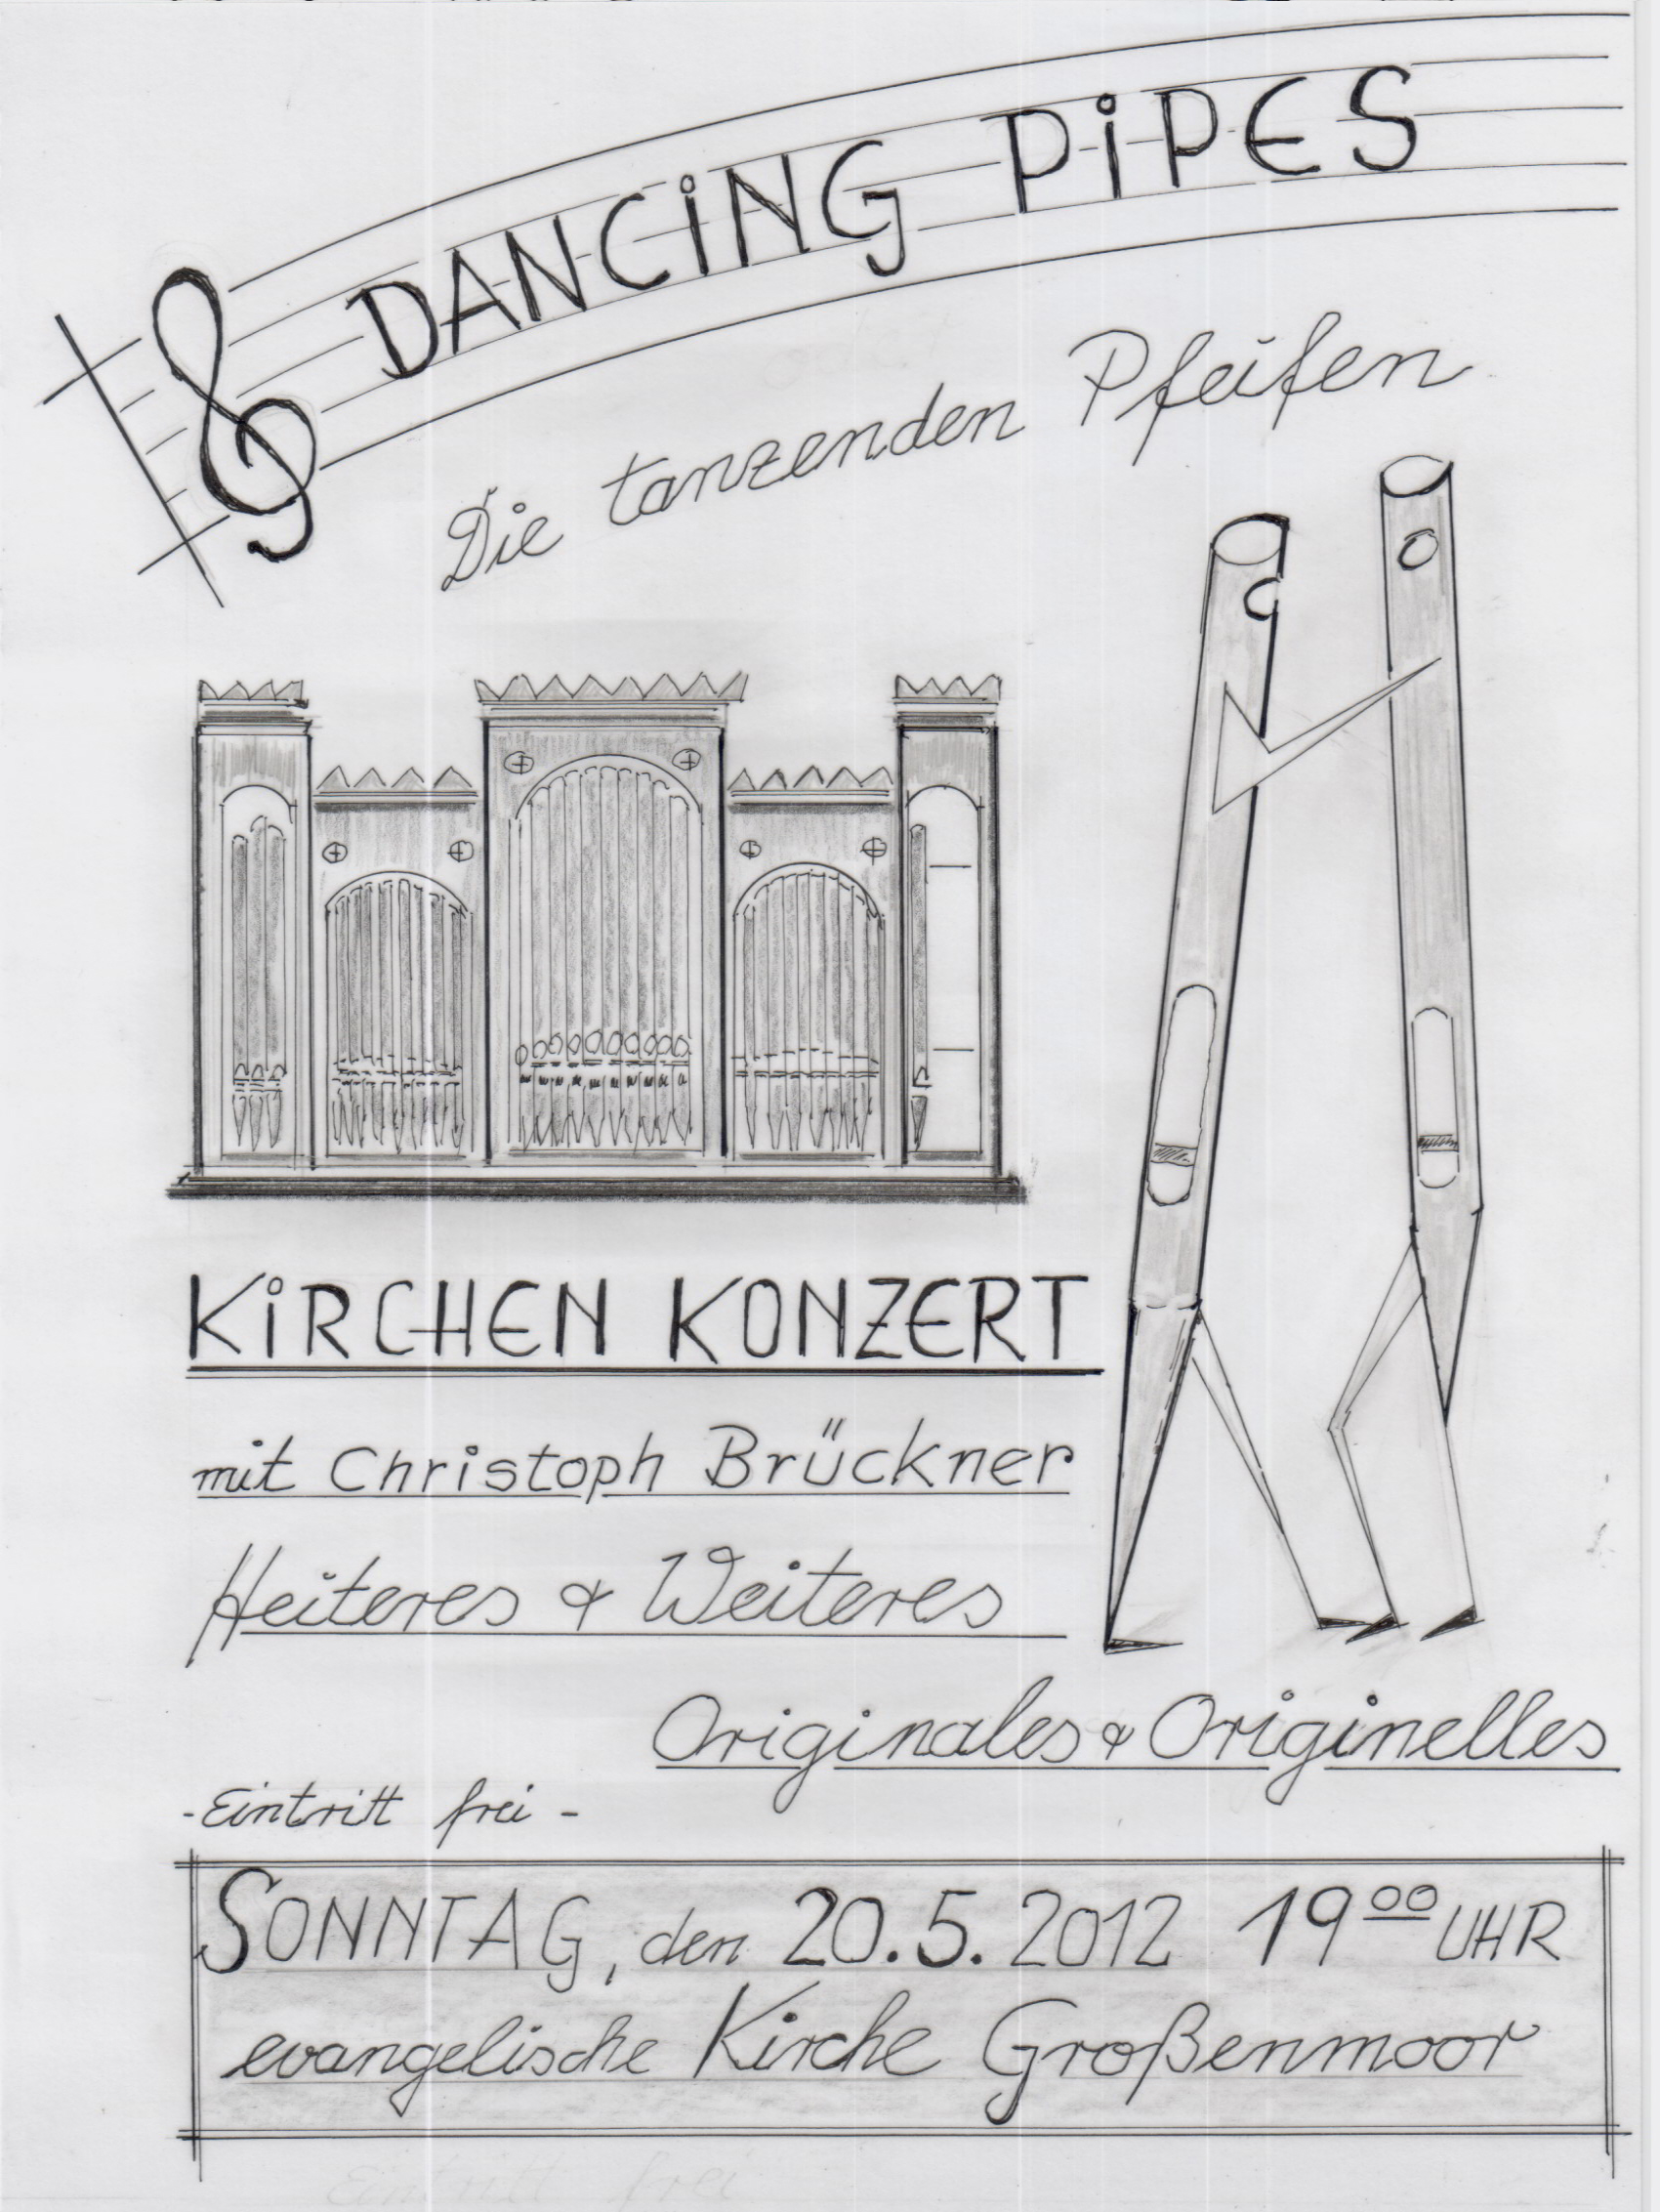 DANCiNG PiPES
Die tanzenden Pfeifen
KiRCHEN KONZERT
mit Christoph Brückner
Heiteres & Weiteres
Originales & Originelles
- Eintritt frei -
SONNTAG, den 20.5.2012 19⁰⁰ UHR
evangelische Kirche Großenmoor
Eintritt frei